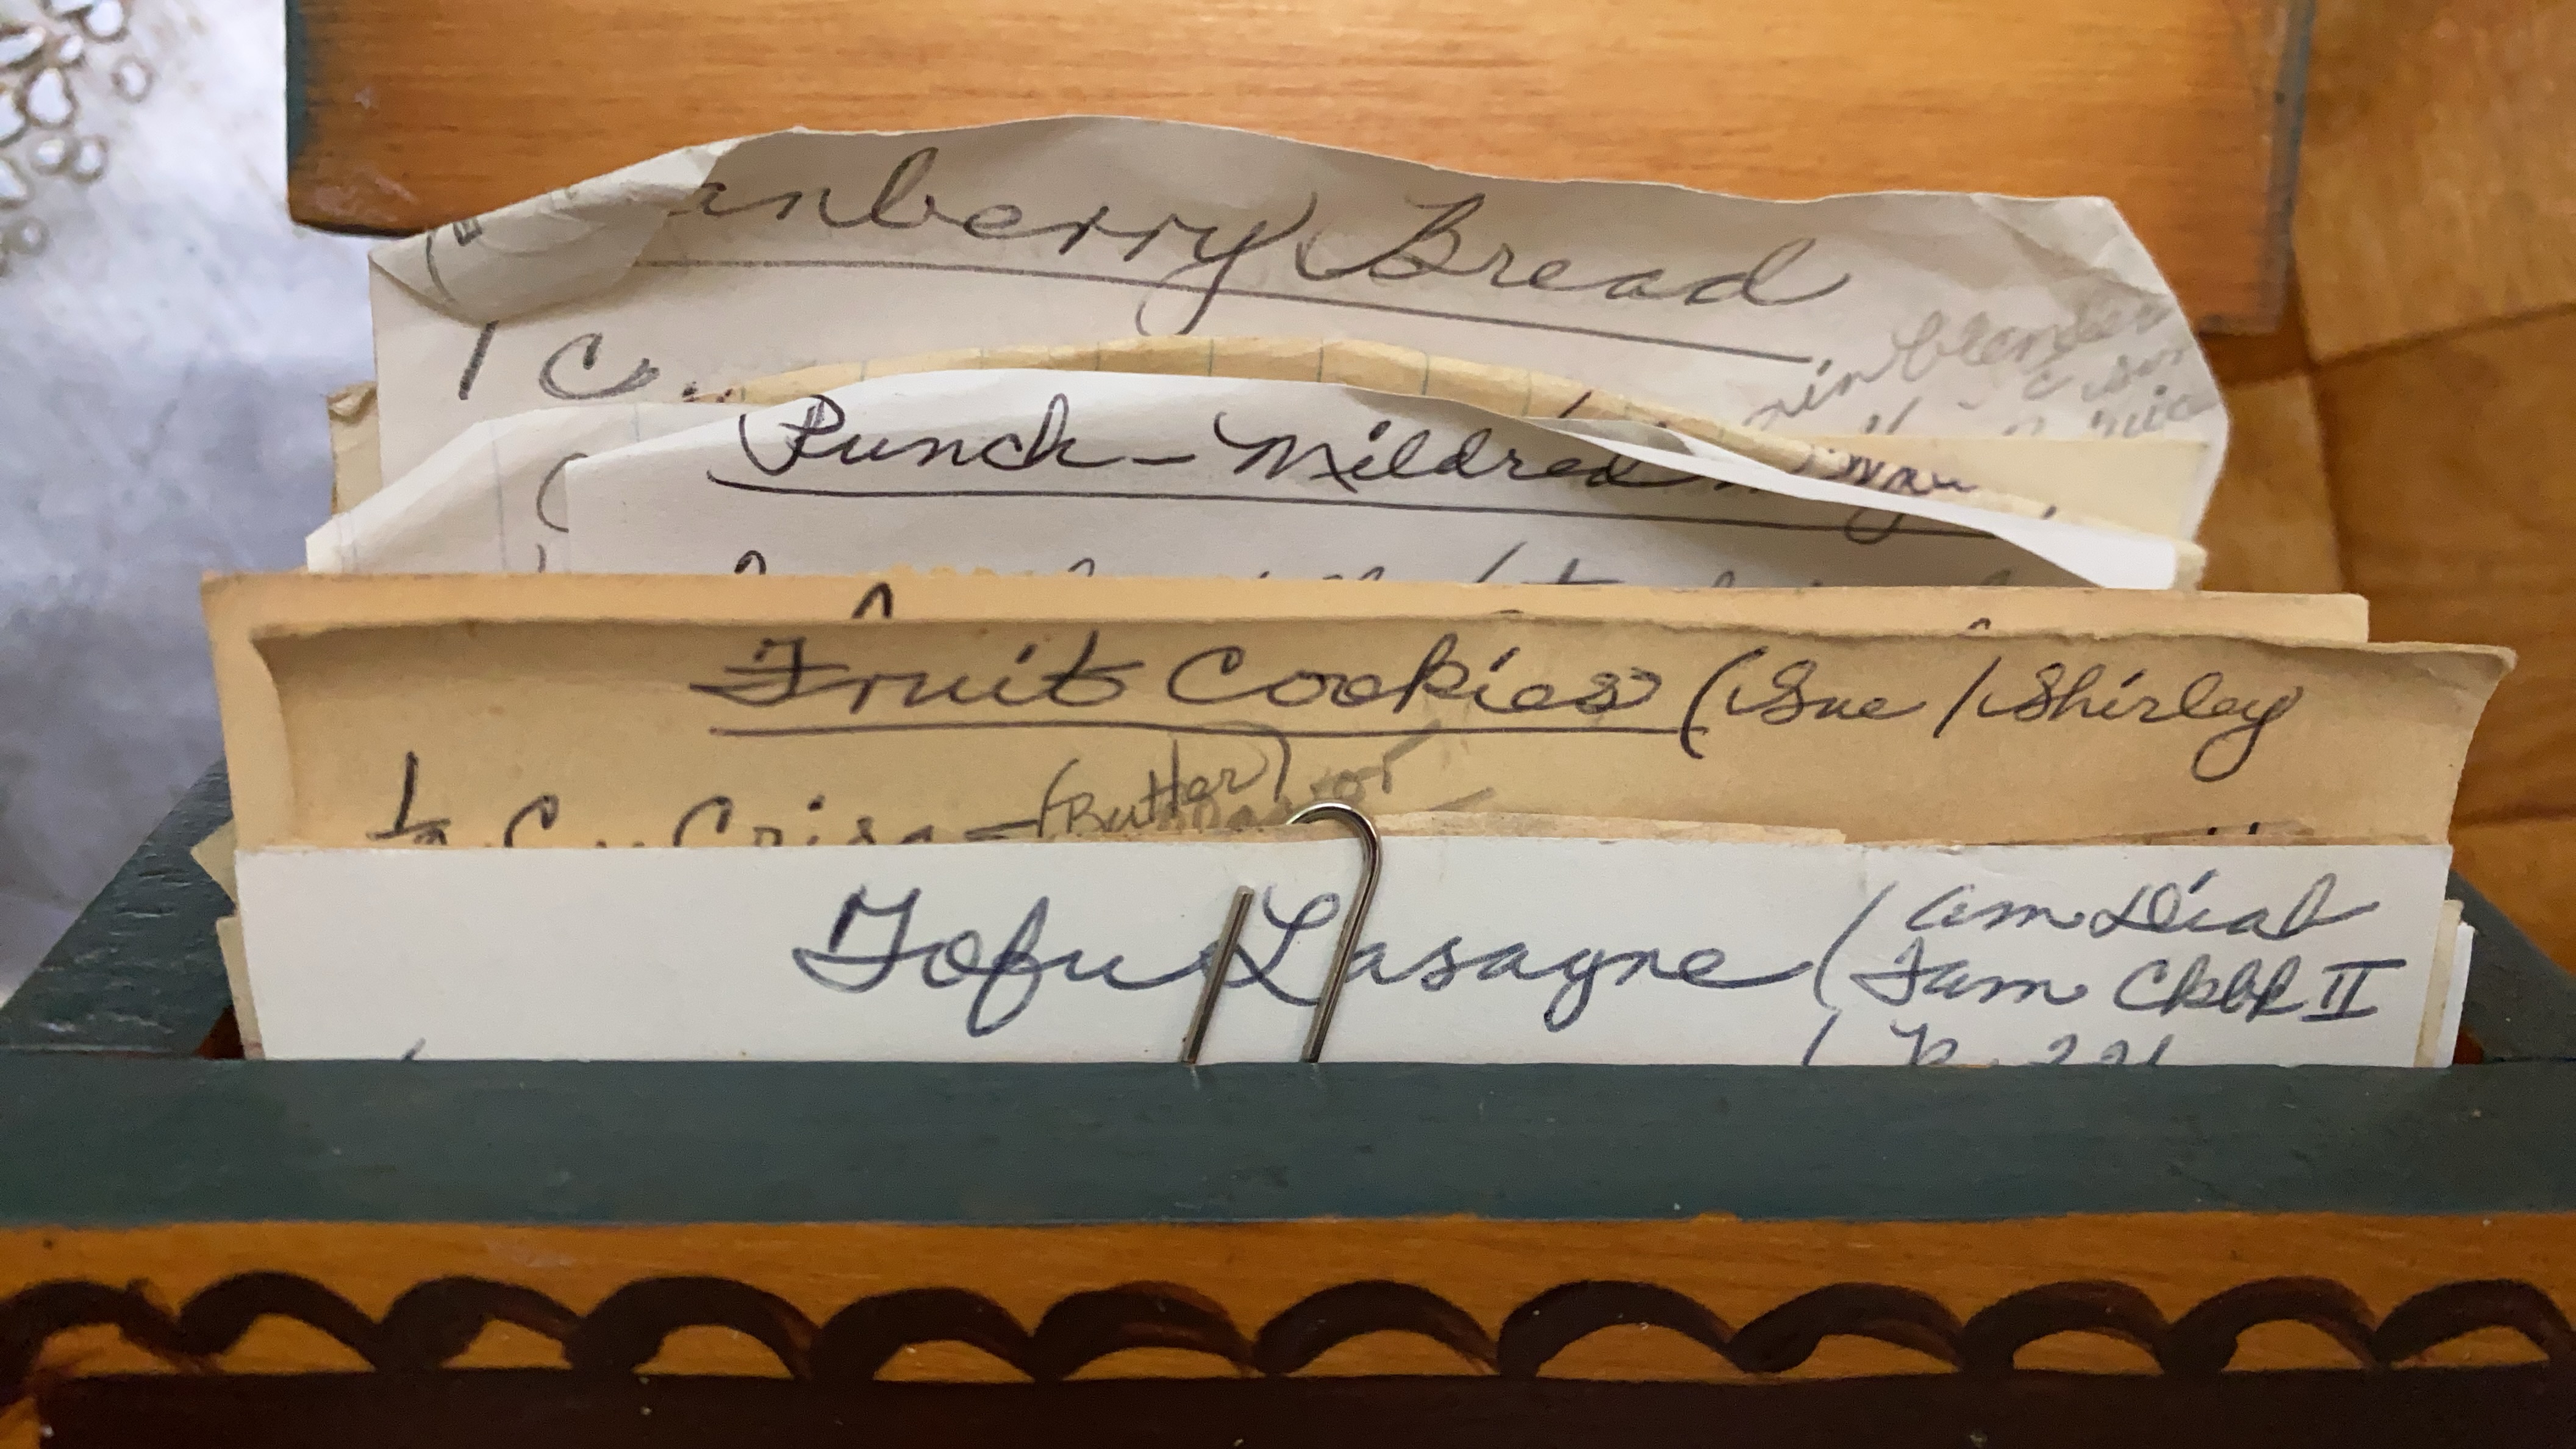 anberry Bread
1 C.
in blender
Punch - Mildred
Fruit Cookies (Sue / Shirley
1/2 C. Crisco (Butter) or
Tofu Lasagne (Am Diab
Fam Ckbk II